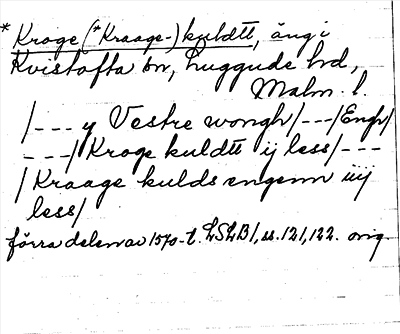 * Kroge (*Kraage-) kuldtt, äng i
Kvistofta sn, Luggude hd,
Malm. l.
/--- y Vestre wongh/---/Engh/
---/ Kroge kuldtt ij less/---
/ Kraage kulds engenn iiij
less/
förra delen av 1570-t. LSLB1, ss. 121, 122. orig.